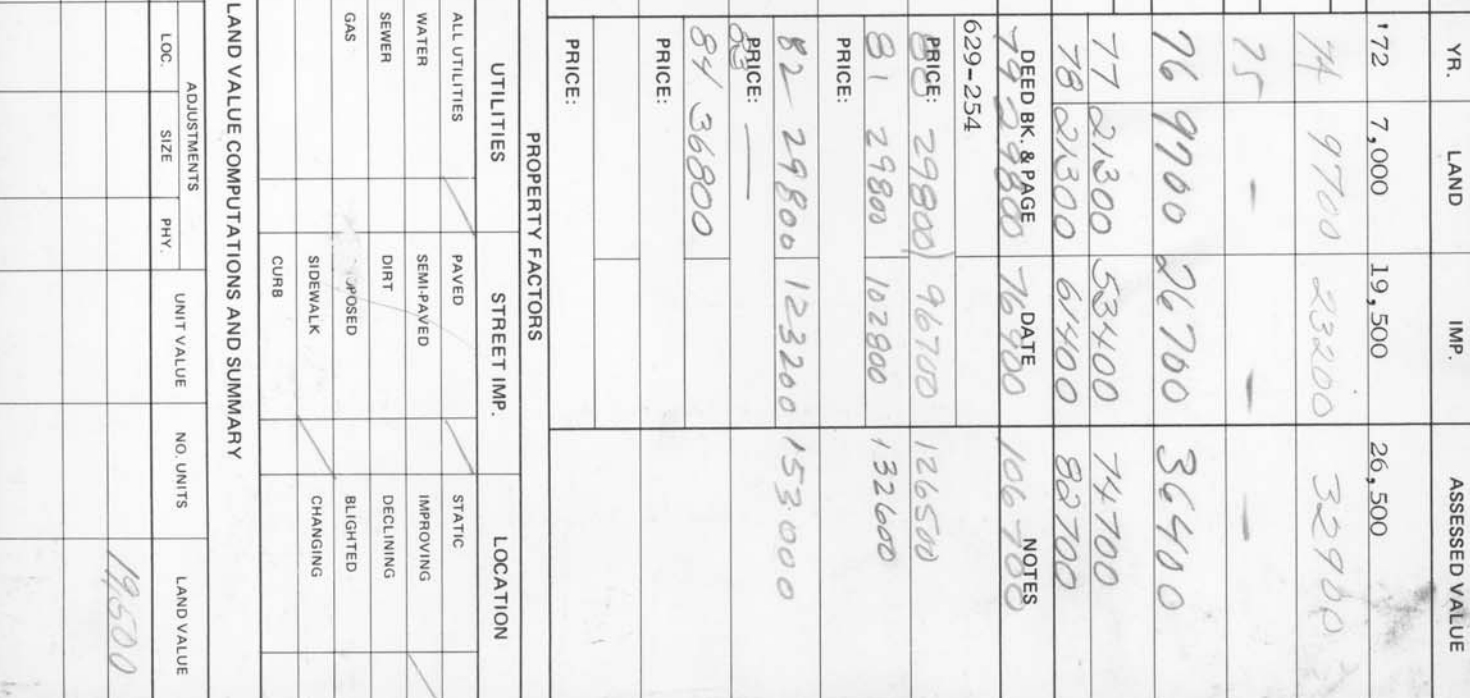 YR. LAND IMP. ASSESSED VALUE
'72 7,000 19,500 26,500
74 9700 23200 32900
75 - - -
76 9700 26700 36400
77 21300 53400 74700
78 21300 61400 82700
DEED BK. & PAGE DATE NOTES
79 29800 76900 106700
629-254
PRICE:
80 29800 96700 126500
81 29800 102800 132600
PRICE:
82 29800 123200 153000
PRICE:
83 —
84 36800
PRICE:
PRICE:
PROPERTY FACTORS
UTILITIES STREET IMP. LOCATION
ALL UTILITIES PAVED STATIC
WATER SEMI-PAVED IMPROVING
SEWER DIRT DECLINING
GAS OPOSED BLIGHTED
SIDEWALK CHANGING
CURB
LAND VALUE COMPUTATIONS AND SUMMARY
ADJUSTMENTS UNIT VALUE NO. UNITS LAND VALUE
LOC. SIZE PHY.
19,500